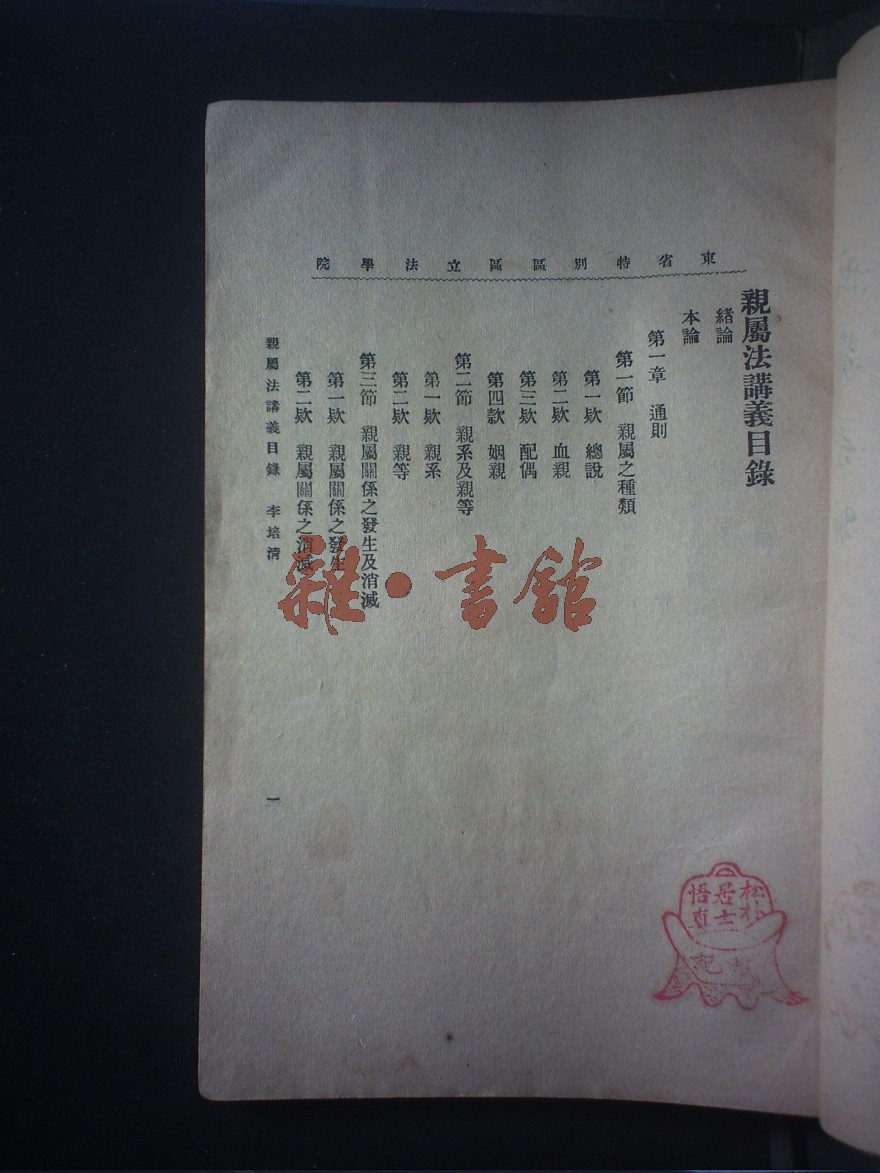 東省特別區區立法學院
親屬法講義目錄
緒論
本論
第一章　通則
第一節　親屬之種類
第一欵　總說
第二欵　血親
第三欵　配偶
第四款　姻親
第二節　親系及親等
第一欵　親系
第二欵　親等
第三節　親屬關係之發生及消滅
第一欵　親屬關係之發生
第二欵　親屬關係之消滅
親屬法講義目錄　李培清
一
雜·書館
松村
居士
悟真
記